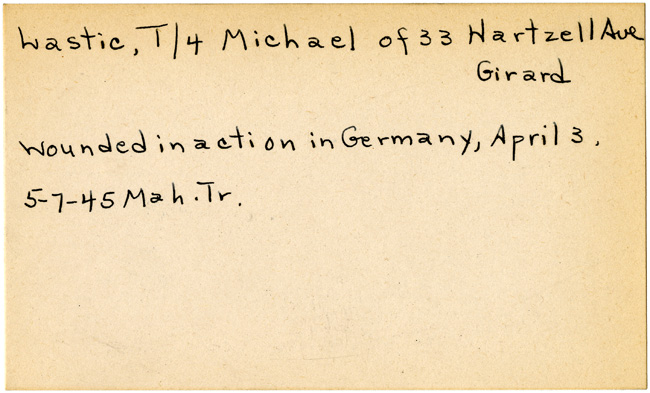 Lastic, T/4 Michael of 33 Hartzell Ave
Girard
Wounded in action in Germany, April 3.
5-7-45 Mah. Tr.